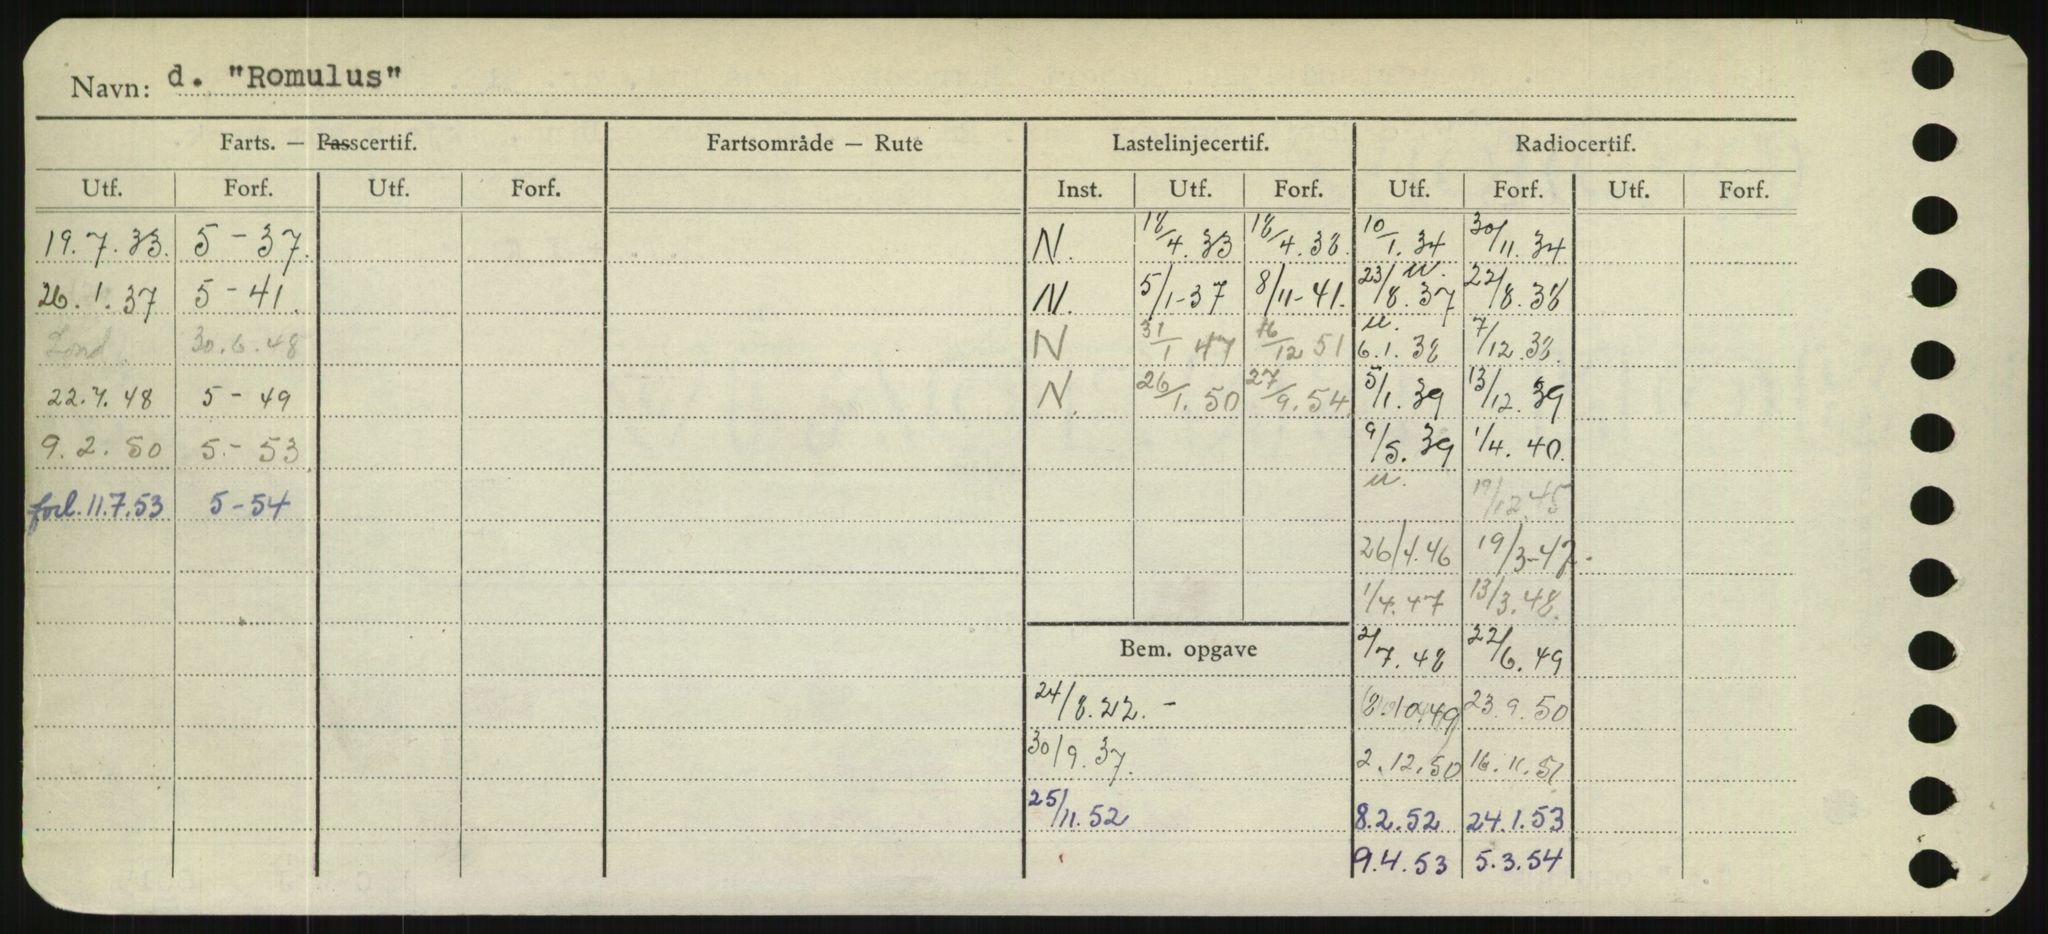 Navn: d. "Romulus"
Farts. — Passcertif. Fartsområde — Rute Lastelinjecertif. Radiocertif.
Utf. Forf. Utf. Forf. Inst. Utf. Forf. Utf. Forf. Utf. Forf.
19.7.33. 5 - 37. N. 18/4.33 18/4.38 10/1.34 30/11.34
26.1.37 5 - 41. N. 5/1-37 8/11-41. 23/8.37 22/8.38
30.6.48 N 31/1 47 16/12 51 6.1.38 7/12.38.
22.7.48 5 - 49 N. 26/1.50 27/9.54 5/1.39 13/12.39
9.2.50 5.- 53 9/5.39 1/4.40.
forl. 11.7.53 5 - 54 19/12.45
26/4.46 19/3-47.
1/4.47 13/3.48.
Bem. opgave 2/7.48 22/6.49
24/8.22. - 8.10.49 23.9.50
30/9.37. 2.12.50 16.11.51
25/11.52 8.2.52 24.1.53
9.4.53 5.3.54